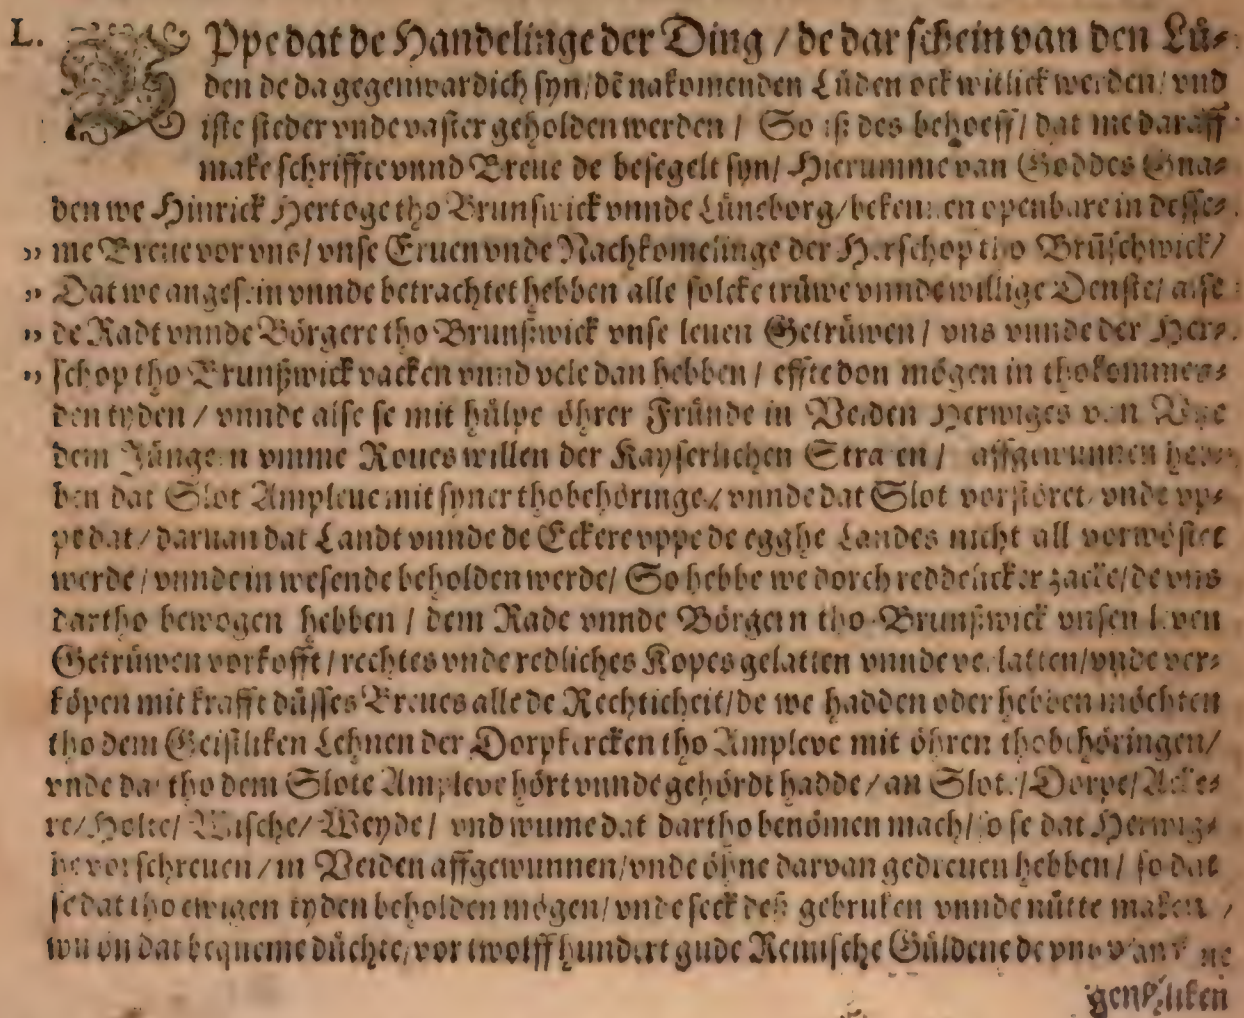 L. VPpe dat de Handelinge der Ding / de dar schein van den Lü⸗
den de da gegenwardich syn / dẽ nakomenden Lüden ock witlick werden / vnd
iste steder vnde vaster geholden werden / So ist des behoeff / dat me daraff
make schriffte vnnd Breue de besegelt syn / Hierumme van Goddes Gna⸗
den we Hinrick Hertoge tho Brunswick vnnde Lüneborg / bekennen openbare in desse⸗
„ me Breue vor vns / vnse Eruen vnde Nachkomelinge der Herschop tho Brüschwick /
„ Dat we angesein vnnde betrachtet hebben alle solcke trüwe vnnde willige Denste / alse
„ de Radt vnnde Börgere tho Brunßwick vnse leuen Getrüwen / vns vnnde der Her⸗
„ schop tho Brunßwick vacken vnnd vele dan hebben / effte don mögen in thokommen⸗
den tyden / vnnde alse se mit hülpe öhrer Fründe in Veiden Herwiges van
dem Jüngern vmme Roues willen der Kayserlichen Straten / affgewunnen heb⸗
ben dat Slot Ampleue mit syner thobehöringe / vnnde dat Slot vorstöret / vnde vp⸗
pe dat / daruan dat Landt vnnde de Eckere vppe de egghe Landes nicht all vorwöstet
werde / vnnde in wesende beholden werde / So hebbe we dorch reddelicker zacke / de vns
dartho bewogen hebben / dem Rade vnnde Börgern tho Brunßwick vnsen leuen
Getrüwen vorkofft / rechtes vnde redliches Kopes gelatten vnnde verlatten / vnde ver⸗
köpen mit krafft düsses Breues alle de Rechticheit / de we hadden oder hebben möchten
tho dem Geistliken Lehnen der Dorpkercken tho Ampleve mit öhren thobehöringen /
vnde dar tho dem Slote Ampleve hört vnnde gehördt hadde / an Slote / Dorpe / Acke⸗
re / Holte / Wische / Weyde / vnd wume dat dartho benömen mach / so se dat Herwig⸗
he vorschreuen / in Veiden affgewunnen / vnde öhne darvan gedreuen hebben / so dat
se dat tho ewigen tyden beholden mögen / vnde seck deß gebruken vnnde nütte maken /
wu ön dat bequeme düchte / vor twolff hundert gude Reinische Güldene de vns
gentzliken